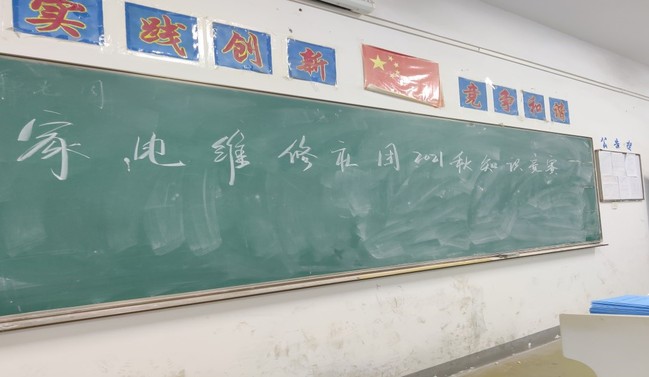 实践创新
竞争和谐
公告栏
家电维修社团2021秋知识竞赛